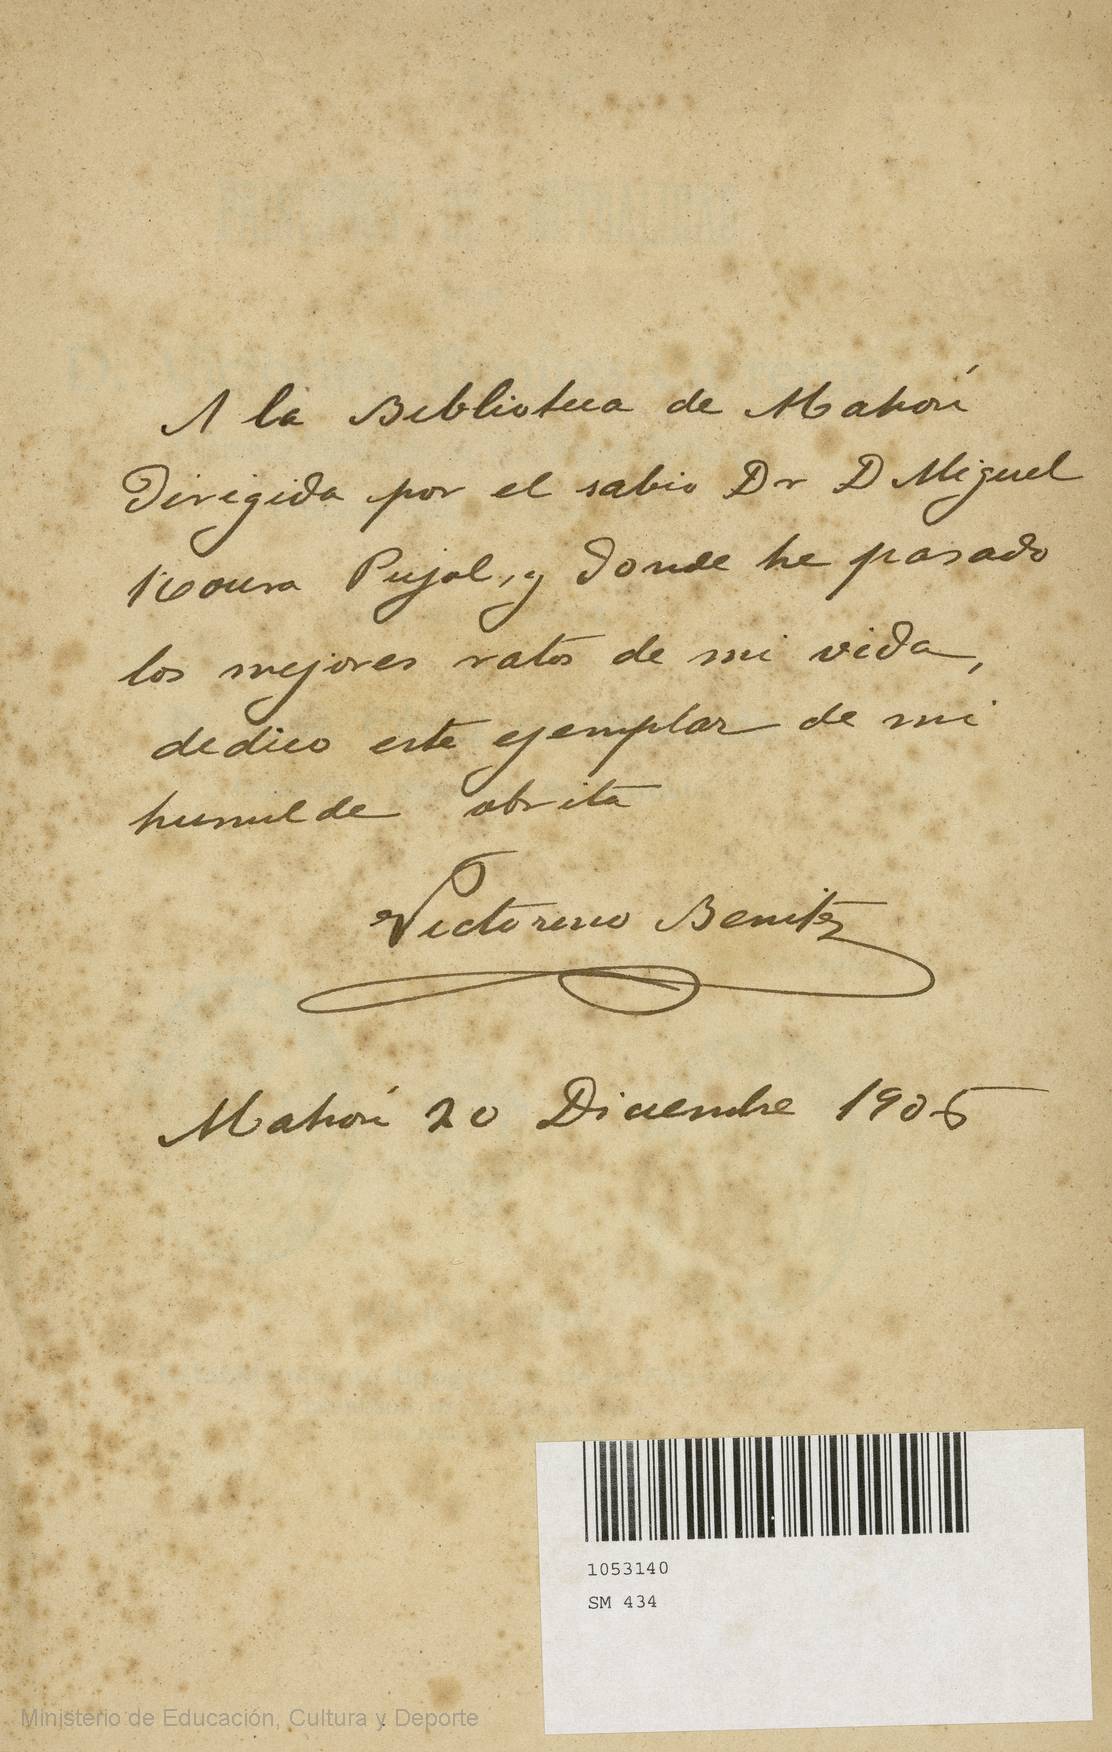 A la Biblioteca de Mahón
Dirigida por el sabio Dr D Miguel
Roura Pujol, y donde he pasado
los mejores ratos de mi vida,
dedico este ejemplar de mi
humilde obrita
Victorino Benitez
Mahón 20 Diciembre 1905
1053140
SM 434
Ministerio de Educación, Cultura y Deporte